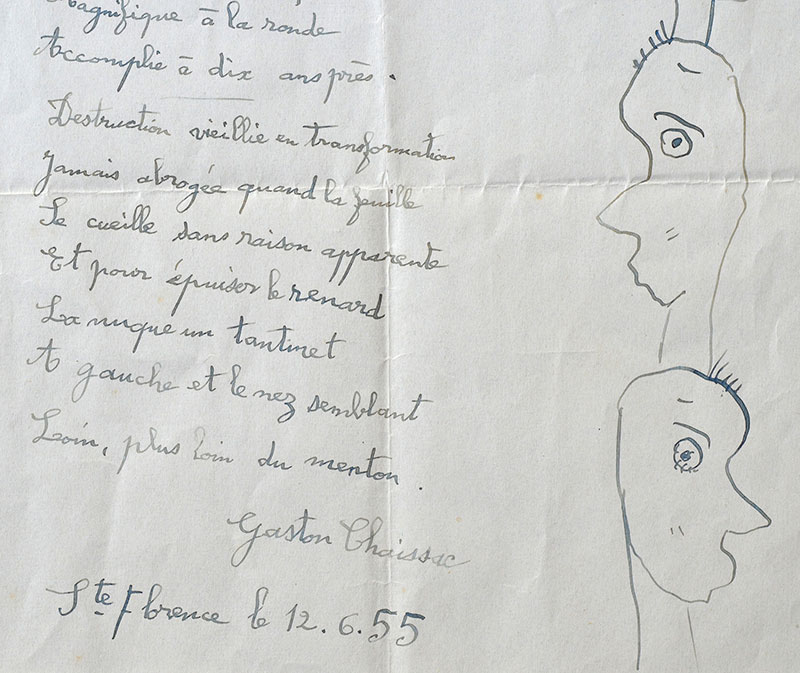 Magnifique à la ronde
Accomplie à dix ans près.
Destruction vieillie en transformation
Jamais abrogée quand la feuille
Se cueille sans raison apparente
Et pour épuiser le renard
La nuque un tantinet
A gauche et le nez semblant
Loin, plus loin du menton.
Gaston Chaissac
Ste Florence le 12.6.55